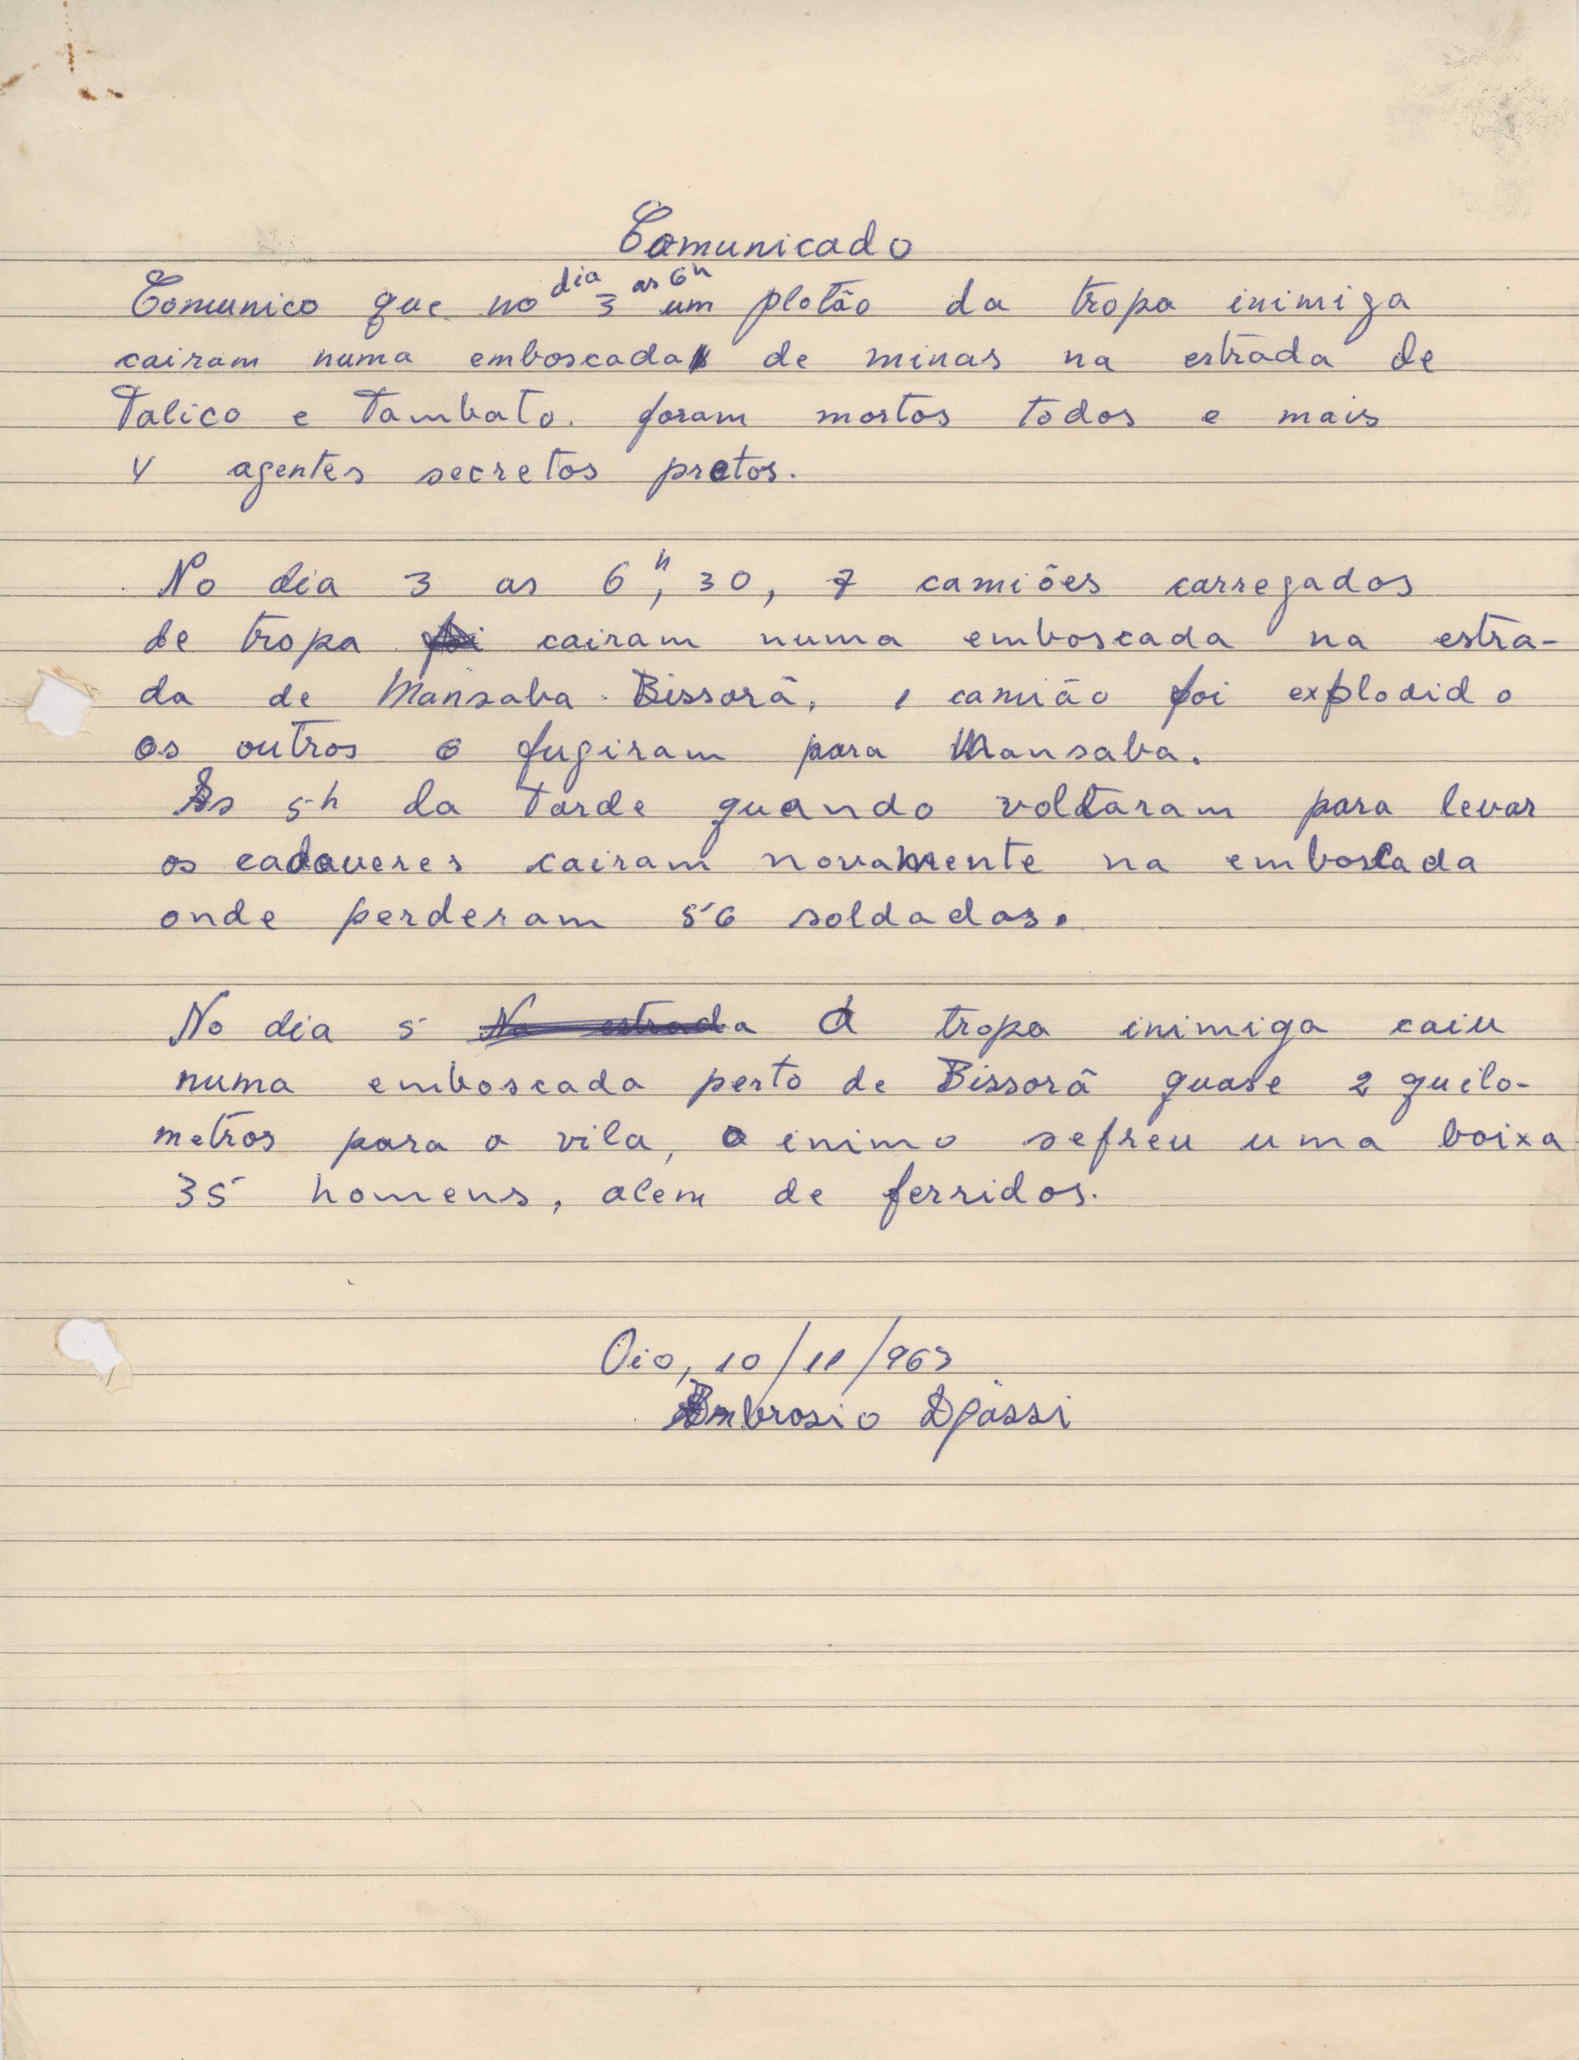 Comunicado
Comunico que no dia 3 as 6h um plotão da tropa inimiga
cairam numa emboscada de minas na estrada de
Talico e Tambato. foram mortos todos e mais
4 agentes secretos pretos.
No dia 3 as 6h, 30, 7 camiões carregados
de tropa cairam numa emboscada na estra-
da de Mansaba. Bissorã, 1 camião foi explodido
os outros 6 fugiram para Mansaba.
As 5h da tarde quando voltaram para levar
os cadaveres cairam novamente na emboscada
onde perderam 56 soldados.
No dia 5 Na estrada A tropa inimiga caiu
numa emboscada perto de Bissorã quase 2 quilo-
metros para a vila, o inimo sefreu uma baixa
35 homens, alem de ferridos.
Oio, 10/11/963
Ambrosio Djassi